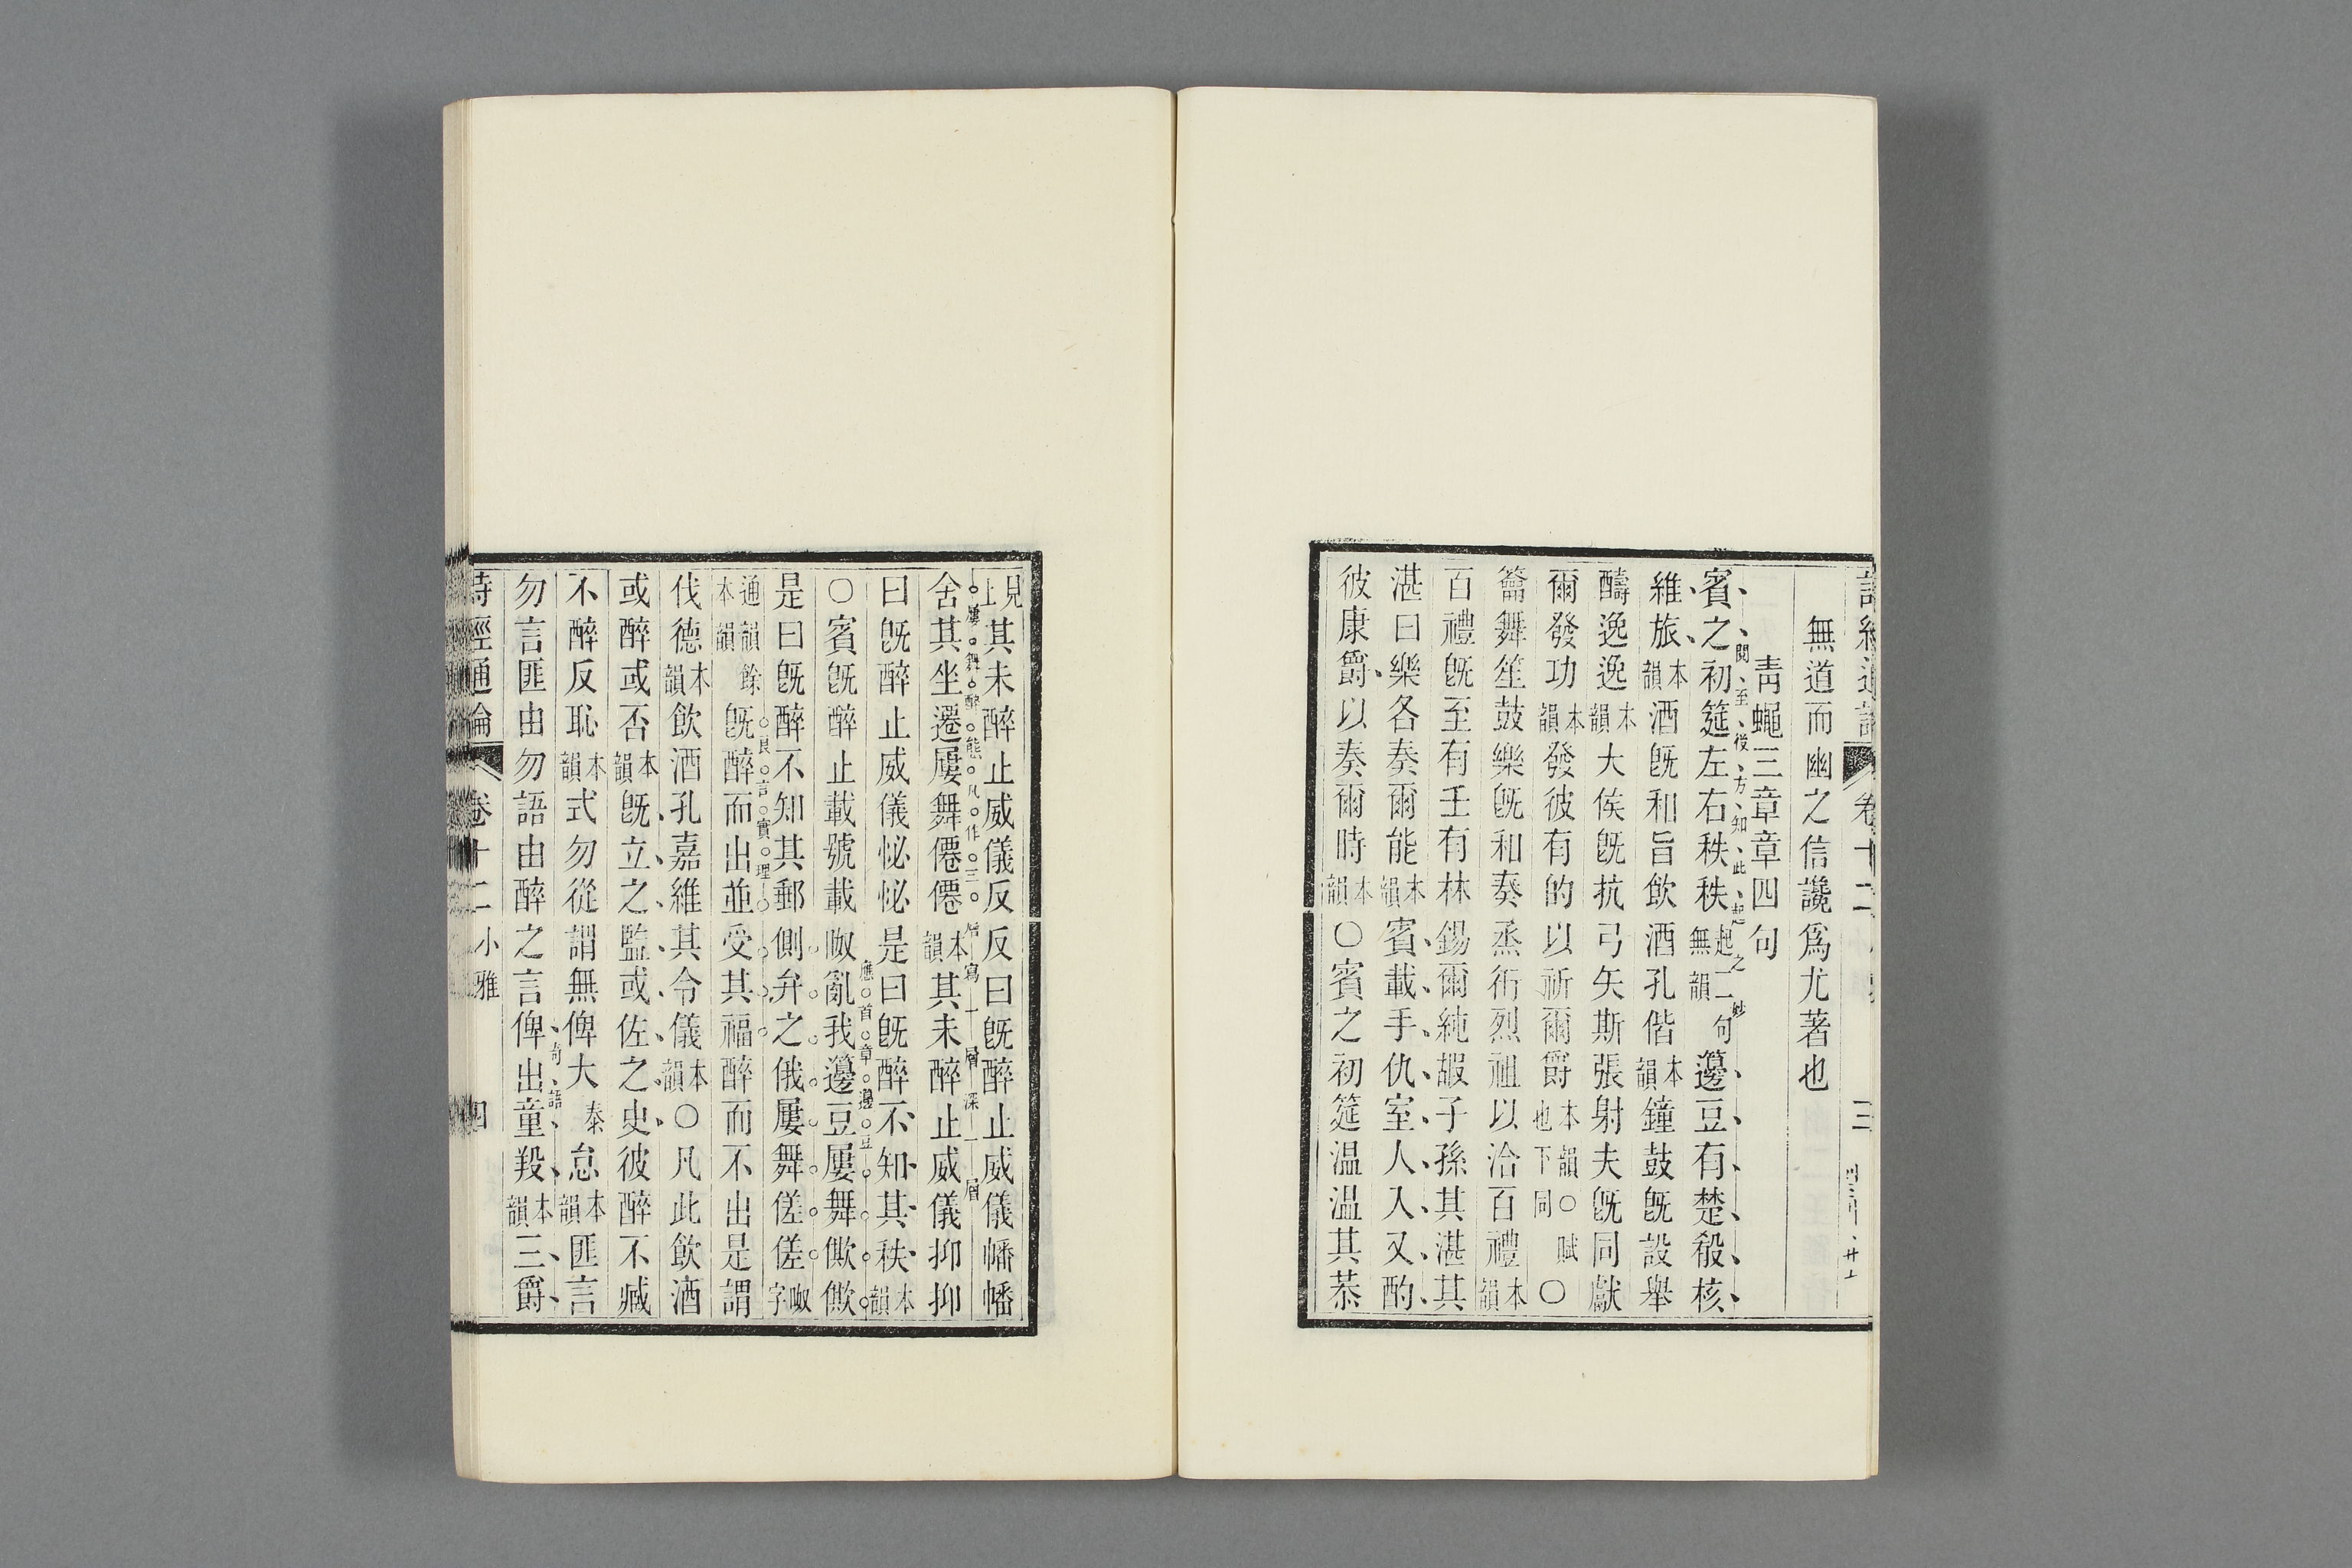 無道而幽之信讒爲尤著也
青蠅三章章四句
賓之初筵左右秩秩無韻起二句籩豆有楚殽核
閱至後方知此起之妙
維旅本韻酒旣和旨飮酒孔偕本韻鐘鼓旣設舉
醻逸逸本韻大侯旣抗弓矢斯張射夫旣同獻
爾發功本韻發彼有的以祈爾爵本韻也下同○賦○
籥舞笙鼓樂旣和奏烝衎烈祖以洽百禮本韻
百禮旣至有壬有林錫爾純嘏子孫其湛其
湛曰樂各奏爾能本韻賓載手仇室人入又酌
彼康爵以奏爾時本韻○賓之初筵温温其恭
其未醉止威儀反反曰旣醉止威儀幡幡
見上屢舞醉態凡作三層寫一層深一層
舍其坐遷屢舞僊僊本韻其未醉止威儀抑抑
曰旣醉止威儀怭怭是曰旣醉不知其秩本韻
○賓旣醉止載號載呶亂我籩豆屢舞僛僛
應首章籩豆
是曰旣醉不知其郵側弁之俄屢舞傞傞呶字
通韻餘本韻旣醉而出並受其福醉而不出是謂
良言實理
伐德本韻飮酒孔嘉維其令儀本韻○凡此飮酒
或醉或否本韻旣立之監或佐之史彼醉不臧
不醉反恥本韻式勿從謂無俾大泰怠本韻匪言
勿言匪由勿語由醉之言俾出童羖本韻三爵
奇語
詩經通論 卷十二小雅 四